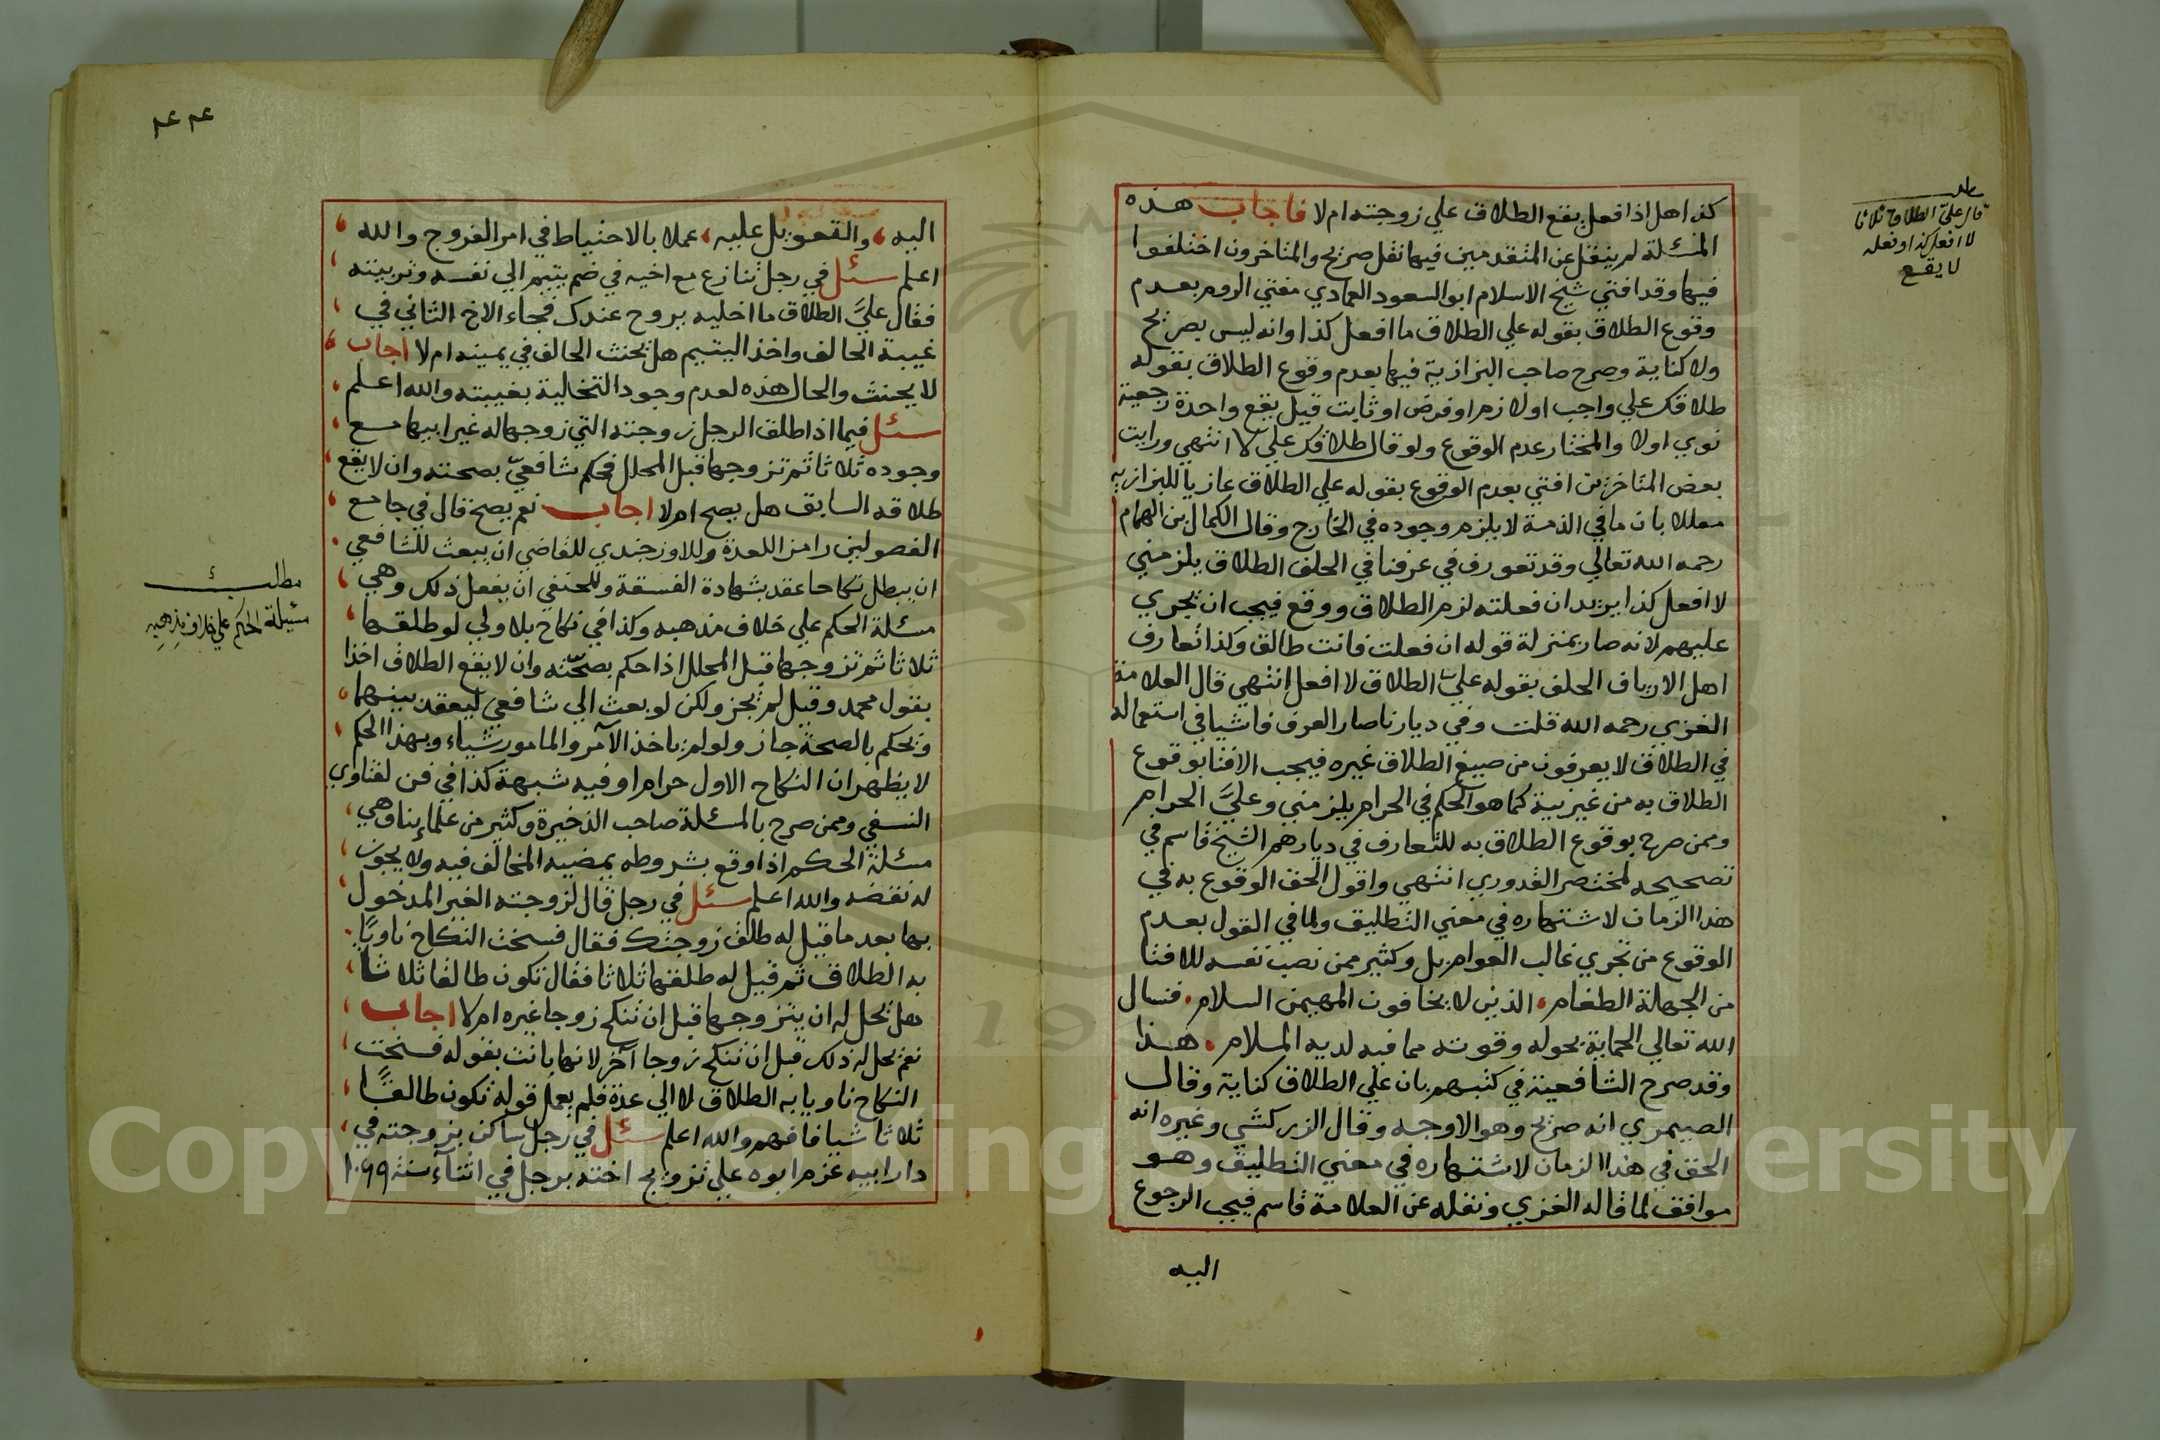 كذا هل اذا فعل يقع الطلاق علي زوجته ام لا فاجاب هذه
المسئلة لم ينقل عن المتقدمين فيها نقل صريح والمتاخرون اختلفوا
فيها وقد افتي شيخ الاسلام ابو السعود العمادي مفتي الروم بعدم
وقوع الطلاق بقوله علي الطلاق ما افعل كذا وانه ليس بصريح
ولا كناية وصرح صاحب البزازية فيها بعدم وقوع الطلاق بقوله
طلاقك علي واجب او لازم او فرض او ثابت قيل يقع واحدة رجعية
نوي اولا والمختار عدم الوقوع ولو قال طلاقك علي لا انتهي ورايت
بعض المتاخرين افتي بعدم الوقوع بقوله علي الطلاق عازيا للبزازيه
معللا بان ما في الذمة لا يلزم وجوده في الخارج وقال الكمال بن الهمام
رحمه الله تعالي وقد تعورف في عرفنا في الحلف الطلاق يلزمني
لا افعل كذا يريد ان فعلته لزم الطلاق ووقع فيجب ان يجري
عليهم لانه صار بمنزلة قوله ان فعلت فانت طالق وكذا تعارف
اهل الارياف الحلف بقوله عليّ الطلاق لا افعل انتهي قال العلامة
الغزي رحمه الله قلت وفي ديارنا صار العرف فاشيا في استعماله
في الطلاق لا يعرفون من صيغ الطلاق غيره فيجب الافتا بوقوع
الطلاق به من غير نية كما هو الحكم في الحرام يلزمني وعليَّ الحرام
وممن صرح بوقوع الطلاق به للتعارف في ديارهم الشيخ قاسم في
تصحيحه لمختصر القدوري انتهي واقول الحق الوقوع به في
هذا الزمان لاشتهاره في معني التطليق ولما في القول بعدم
الوقوع من تجري غالب العوام بل وكثير ممن نصب نفسه للافتا
من الجهلة الطغام، الذين لا يخافون المهيمن السلام، فنسال
الله تعالي الحماية بحوله وقوته مما فيه لديه الملام، هذا
وقد صرح الشافعية في كتبهم بان علي الطلاق كناية وقال
الصيمري انه صريح وهو الاوجه وقال الزركشي وغيره انه
الحق في هذا الزمان لاشتهاره في معني التطليق وهو
موافق لما قاله الغزي ونقله عن العلامة قاسم فيجب الرجوع
اليه
قال عليّ الطلاق ثلاثا
لا افعل كذا وفعله
لا يقع
اليه، والتعويل عليه، عملا بالاحتياط في امر الفروج والله
اعلم سئل في رجل تنازع مع اخيه في ضم يتيم الي نفسه وتربيته
فقال عليَّ الطلاق ما اخليه يروح عندك فجاء الاخ الثاني في
غيبة الحالف واخذ اليتيم هل يحنث الحالف في يمينه ام لا اجاب
لا يحنث والحال هذه لعدم وجود التخلية بغيبته والله اعلم
سئل فيما اذا طلق الرجل زوجته التي زوجها له غير ابيها مع
وجوده ثلاثا ثم تزوجها قبل المحلل فحكم شافعي بصحته وان لا يقع
طلاقه السابق هل يصح ام لا اجاب نعم يصح قال في جامع
الفصولين رامزا للعدة وللاوزجندي للقاضي ان يبعث للشافعي
ان يبطل نكاحا عقد بشهادة الفسقة وللحنفي ان يفعل ذلك وهي
مسئلة الحكم علي خلاف مذهبه وكذا في نكاح بلا ولي لو طلقها
ثلاثا ثم تزوجها قبل المحلل اذا حكم بصحته وان لا يقع الطلاق اخذا
بقول محمد وقيل لم يجز ولكن لو بعث الي شافعي ليعقد بينهما
ويحكم بالصحة جاز ولو لم ياخذ الآمر والمامور شياء وبهذا الحكم
لا يظهر ان النكاح الاول حرام او فيه شبهة كذا في فن لفتاوي
النسفي وممن صرح بالمسئلة صاحب الذخيرة وكثير من علمائنا وهي
مسئلة الحكم اذا وقع بشروطه يمضيه المخالف فيه ولا يجوز
له نقضه والله اعلم سئل في رجل قال لزوجته الغير المدخول
بها بعد ما قيل له طلق زوجتك فقال فسخت النكاح ناويا
به الطلاق ثم قيل له طلقتها ثلاثا فقال تكون طالقا ثلاثا
هل يحل له ان يتزوجها قبل ان تنكح زوجا غيره ام لا اجاب
نعم يحل له ذلك قبل ان تنكح زوجا آخر لانها بانت بقوله فسخت
النكاح ناويا به الطلاق لا الي عدة فلم يعمل قوله تكون طالقا
ثلاثا شيا فافهم والله اعلم سئل في رجل ساكن بزوجته في
دار ابيه عزم ابوه علي تزويج اخته برجل في اثناء سنة ١٠٩٩
مطلب
مسئلة الحكم علي خلاف مذهبه
Copyright © King Saud University